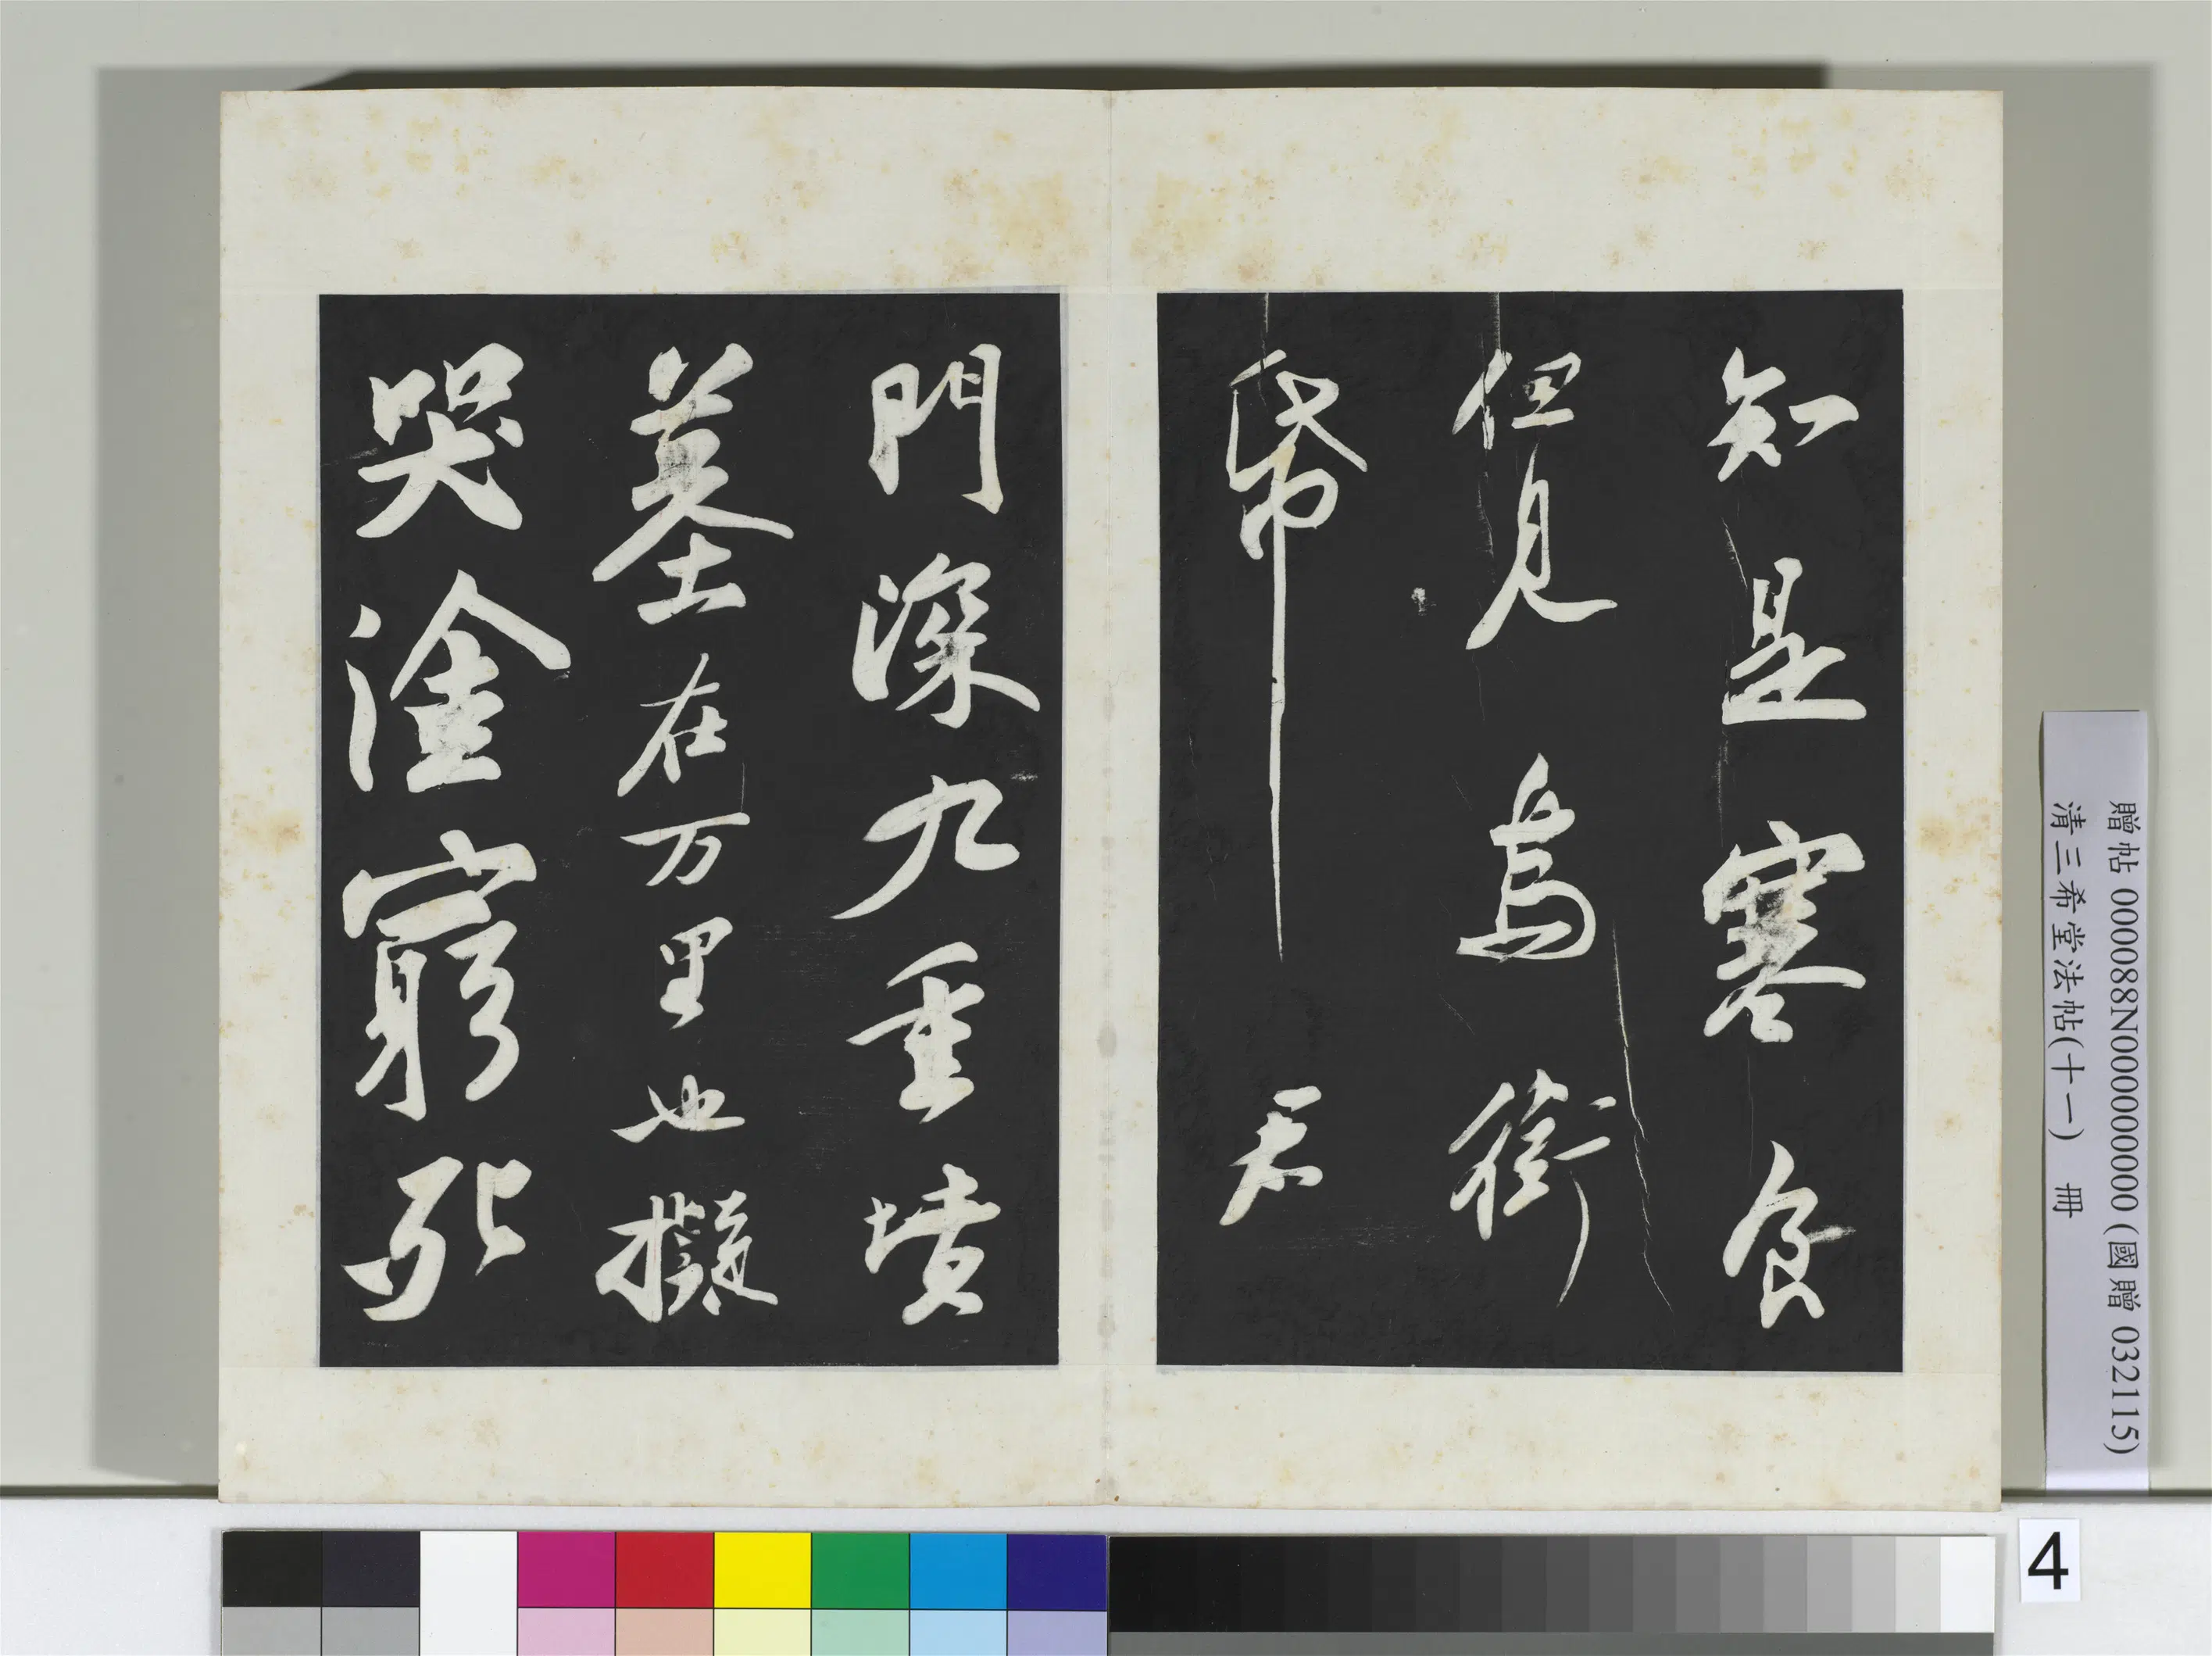 知是寒食
但見烏銜
帋君
門深九重墳
墓在万里也擬
哭塗窮死
贈帖 000088N000000000 (國贈 032115)
清三希堂法帖(十一) 冊
4